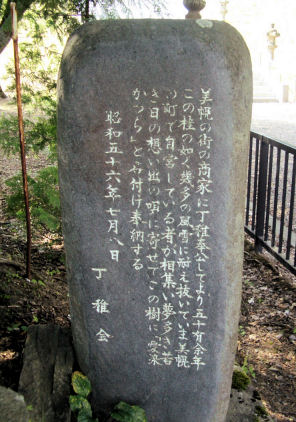 美幌の街の商家に丁稚奉公してより五十有余年
この桂の如く幾多の風雪に耐え抜いていま美幌
の町で自営している者が相集い夢多き若
き日の想い出の唄に寄せてこの樹に「愛染
かつら」と名付け奉納する
昭和五十六年七月八日
丁稚会